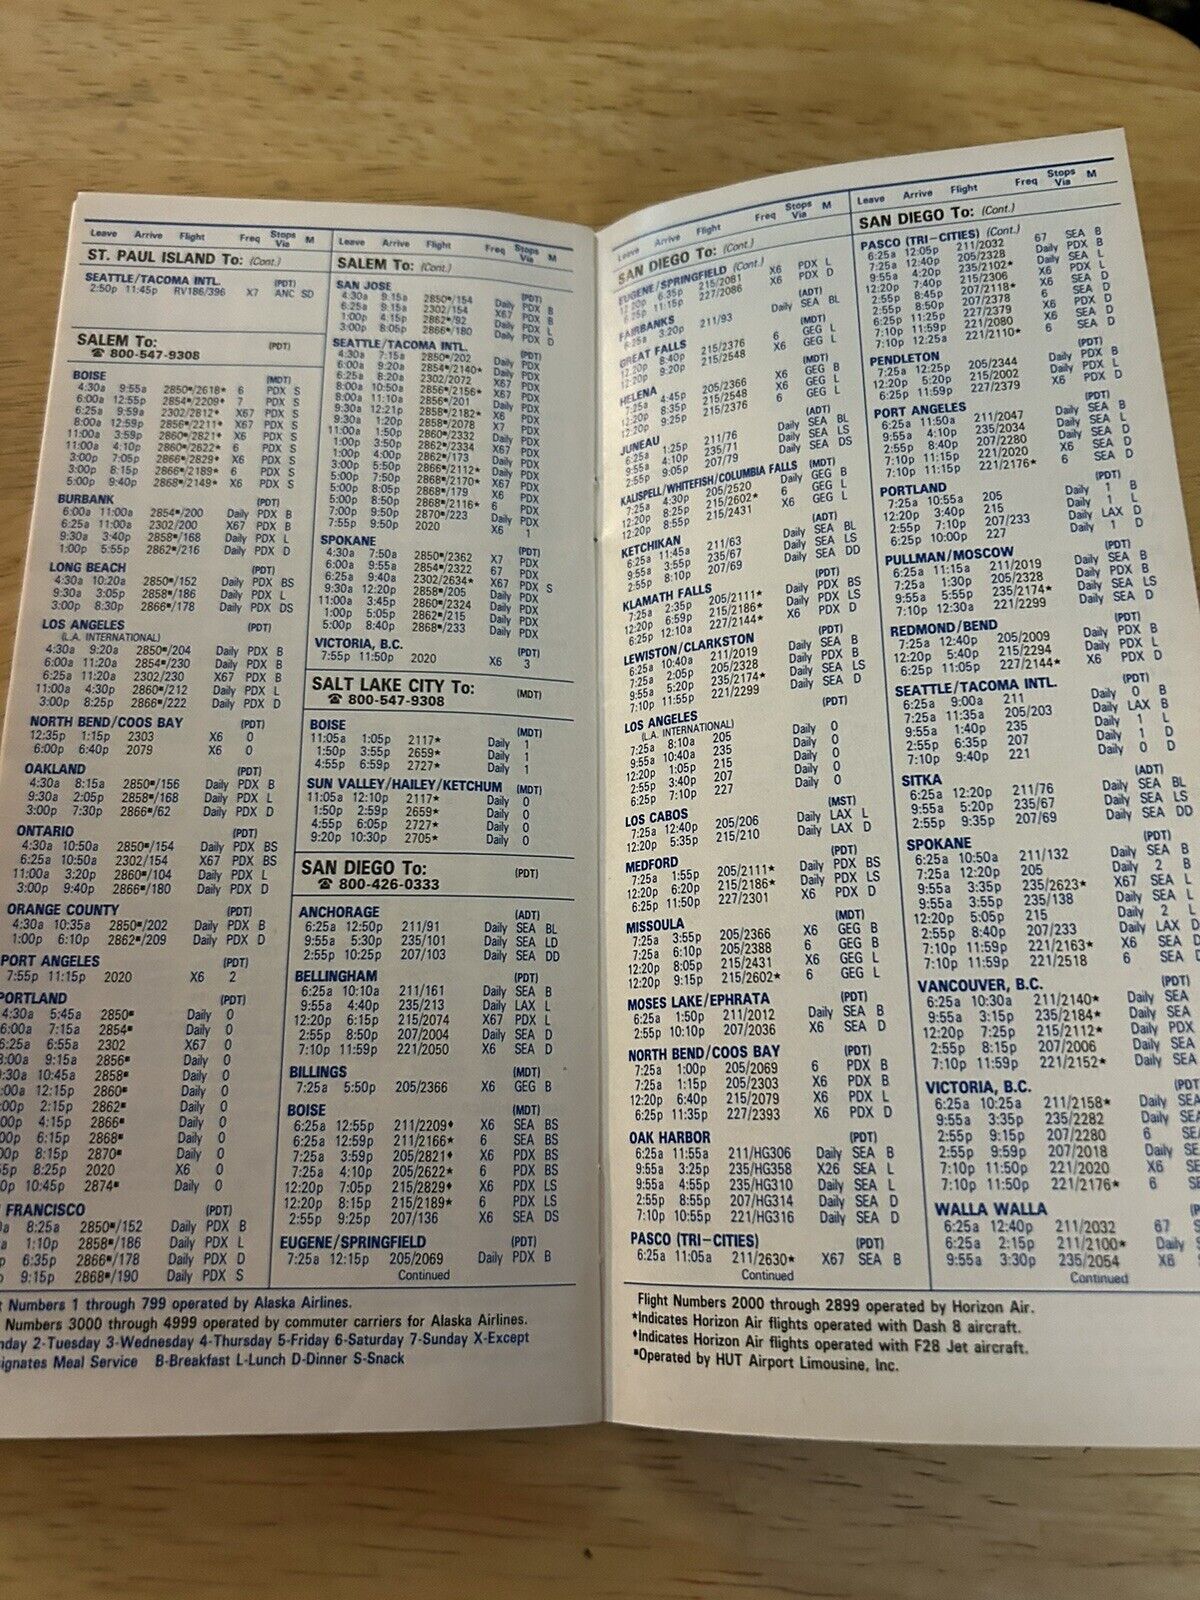 Leave Arrive Flight Freq Stops Via M
ST. PAUL ISLAND To: (Cont.)
SEATTLE/TACOMA INTL. (PDT)
2:50p 11:45p RV186/396 X7 ANC SD
SALEM To: (PDT)
☎ 800-547-9308
BOISE (MDT)
4:30a 9:55a 2850■/2618★ 6 PDX S
6:00a 12:55p 2854■/2209★ 7 PDX S
6:25a 9:59a 2302/2812★ X67 PDX S
8:00a 12:59p 2856■/2211★ X67 PDX S
11:00a 3:59p 2860■/2821★ X6 PDX S
11:00a 4:10p 2860■/2622★ 6 PDX S
3:00p 7:05p 2866■/2829★ X6 PDX S
3:00p 8:15p 2866■/2189★ 6 PDX S
5:00p 9:40p 2868■/2149★ X6 PDX S
BURBANK (PDT)
6:00a 11:00a 2854■/200 Daily PDX B
6:25a 11:00a 2302/200 X67 PDX B
9:30a 3:40p 2858■/168 Daily PDX L
1:00p 5:55p 2862■/216 Daily PDX D
LONG BEACH (PDT)
4:30a 10:20a 2850■/152 Daily PDX BS
9:30a 3:05p 2858■/186 Daily PDX L
3:00p 8:30p 2866■/178 Daily PDX DS
LOS ANGELES (PDT)
(L.A. INTERNATIONAL)
4:30a 9:20a 2850■/204 Daily PDX B
6:00a 11:20a 2854■/230 Daily PDX B
6:25a 11:20a 2302/230 X67 PDX B
11:00a 4:30p 2860■/212 Daily PDX L
3:00p 8:25p 2866■/222 Daily PDX D
NORTH BEND/COOS BAY (PDT)
12:35p 1:15p 2303 X6 0
6:00p 6:40p 2079 X6 0
OAKLAND (PDT)
4:30a 8:15a 2850■/156 Daily PDX B
9:30a 2:05p 2858■/168 Daily PDX L
3:00p 7:30p 2866■/62 Daily PDX D
ONTARIO (PDT)
4:30a 10:50a 2850■/154 Daily PDX BS
6:25a 10:50a 2302/154 X67 PDX BS
11:00a 3:20p 2860■/104 Daily PDX L
3:00p 9:40p 2866■/180 Daily PDX D
ORANGE COUNTY (PDT)
4:30a 10:35a 2850■/202 Daily PDX B
1:00p 6:10p 2862■/209 Daily PDX D
PORT ANGELES (PDT)
7:55p 11:15p 2020 X6 2
PORTLAND (PDT)
4:30a 5:45a 2850■ Daily 0
6:00a 7:15a 2854■ Daily 0
6:25a 6:55a 2302 X67 0
8:00a 9:15a 2856■ Daily 0
9:30a 10:45a 2858■ Daily 0
:00a 12:15p 2860■ Daily 0
:00p 2:15p 2862■ Daily 0
:00p 4:15p 2866■ Daily 0
:00p 6:15p 2868■ Daily 0
:00p 8:15p 2870■ Daily 0
5p 8:25p 2020 X6 0
0p 10:45p 2874■ Daily 0
FRANCISCO (PDT)
a 8:25a 2850■/152 Daily PDX B
a 1:10p 2858■/186 Daily PDX L
p 6:35p 2866■/178 Daily PDX D
p 9:15p 2868■/190 Daily PDX S
Leave Arrive Flight Freq Stops Via M
SALEM To: (Cont.)
SAN JOSE (PDT)
4:30a 9:15a 2850■/154 Daily PDX B
6:25a 9:15a 2302/154 X67 PDX B
1:00p 4:15p 2862■/92 Daily PDX L
3:00p 8:05p 2866■/180 Daily PDX D
SEATTLE/TACOMA INTL. (PDT)
4:30a 7:15a 2850■/202 Daily PDX
6:00a 9:20a 2854■/2140★ Daily PDX
6:25a 8:20a 2302/2072 X67 PDX
8:00a 10:50a 2856■/2156★ X67 PDX
8:00a 11:10a 2856■/201 Daily PDX
9:30a 12:21p 2858■/2182★ X6 PDX
9:30a 1:20p 2858■/2078 X7 PDX
11:00a 1:50p 2860■/2332 Daily PDX
1:00p 3:50p 2862■/2334 X67 PDX
1:00p 4:00p 2862■/173 Daily PDX
3:00p 5:50p 2866■/2112★ Daily PDX
5:00p 7:50p 2868■/2170★ X67 PDX
5:00p 8:05p 2868■/179 X6 PDX
5:00p 8:50p 2868■/2116★ 6 PDX
7:00p 9:50p 2870■/223 Daily PDX
7:55p 9:50p 2020 X6 1
SPOKANE (PDT)
4:30a 7:50a 2850■/2362 X7 PDX
6:00a 9:55a 2854■/2322 67 PDX
6:25a 9:40a 2302/2634★ X67 PDX S
9:30a 12:20p 2858■/205 Daily PDX
11:00a 3:45p 2860■/2324 Daily PDX
1:00p 5:05p 2862■/215 Daily PDX
5:00p 8:40p 2868■/233 Daily PDX
VICTORIA, B.C. (PDT)
7:55p 11:50p 2020 X6 3
SALT LAKE CITY To: (MDT)
☎ 800-547-9308
BOISE (MDT)
11:05a 1:05p 2117★ Daily 1
1:50p 3:55p 2659★ Daily 1
4:55p 6:59p 2727★ Daily 1
SUN VALLEY/HAILEY/KETCHUM (MDT)
11:05a 12:10p 2117★ Daily 0
1:50p 2:59p 2659★ Daily 0
4:55p 6:05p 2727★ Daily 0
9:20p 10:30p 2705★ Daily 0
SAN DIEGO To: (PDT)
☎ 800-426-0333
ANCHORAGE (ADT)
6:25a 12:50p 211/91 Daily SEA BL
9:55a 5:30p 235/101 Daily SEA LD
2:55p 10:25p 207/103 Daily SEA DD
BELLINGHAM (PDT)
6:25a 10:10a 211/161 Daily SEA B
9:55a 4:40p 235/213 Daily LAX L
12:20p 6:15p 215/2074 X67 PDX L
2:55p 8:50p 207/2004 Daily SEA D
7:10p 11:59p 221/2050 X6 SEA D
BILLINGS (MDT)
7:25a 5:50p 205/2366 X6 GEG B
BOISE (MDT)
6:25a 12:55p 211/2209♦ X6 SEA BS
6:25a 12:59p 211/2166★ 6 SEA BS
7:25a 3:59p 205/2821♦ X6 PDX BS
7:25a 4:10p 205/2622★ 6 PDX BS
12:20p 7:05p 215/2829♦ X6 PDX LS
12:20p 8:15p 215/2189★ 6 PDX LS
2:55p 9:25p 207/136 X6 SEA DS
EUGENE/SPRINGFIELD (PDT)
7:25a 12:15p 205/2069 Daily PDX B
Continued
t Numbers 1 through 799 operated by Alaska Airlines.
Numbers 3000 through 4999 operated by commuter carriers for Alaska Airlines.
nday 2-Tuesday 3-Wednesday 4-Thursday 5-Friday 6-Saturday 7-Sunday X-Except
signates Meal Service B-Breakfast L-Lunch D-Dinner S-Snack
Leave Arrive Flight Freq Stops Via M
SAN DIEGO To: (Cont.)
EUGENE/SPRINGFIELD (Cont.) (PDT)
12:20p 6:35p 215/2081 X6 PDX L
6:25p 11:15p 227/2086 X6 PDX D
FAIRBANKS (ADT)
6:25a 3:20p 211/93 Daily SEA BL
GREAT FALLS (MDT)
12:20p 8:40p 215/2376 6 GEG L
12:20p 9:20p 215/2548 X6 GEG L
HELENA (MDT)
7:25a 4:45p 205/2366 X6 GEG B
12:20p 8:35p 215/2548 X6 GEG L
12:20p 9:25p 215/2376 6 GEG L
JUNEAU (ADT)
6:25a 1:25p 211/76 Daily SEA BL
9:55a 4:10p 235/71 Daily SEA LS
2:55p 9:05p 207/79 Daily SEA DS
KALISPELL/WHITEFISH/COLUMBIA FALLS (MDT)
7:25a 4:30p 205/2520 Daily GEG B
12:20p 8:25p 215/2602★ 6 GEG L
12:20p 8:55p 215/2431 X6 GEG L
KETCHIKAN (ADT)
6:25a 11:45a 211/63 Daily SEA BL
9:55a 3:55p 235/67 Daily SEA LS
2:55p 8:10p 207/69 Daily SEA DD
KLAMATH FALLS (PDT)
7:25a 2:35p 205/2111★ Daily PDX BS
12:20p 6:59p 215/2186★ Daily PDX LS
6:25p 12:10a 227/2144★ X6 PDX D
LEWISTON/CLARKSTON (PDT)
6:25a 10:40a 211/2019 Daily SEA B
7:25a 2:05p 205/2328 Daily PDX B
9:55a 5:20p 235/2174★ Daily SEA LS
7:10p 11:55p 221/2299 Daily SEA D
LOS ANGELES (PDT)
(L.A. INTERNATIONAL)
7:25a 8:10a 205 Daily 0
9:55a 10:40a 235 Daily 0
12:20p 1:05p 215 Daily 0
2:55p 3:40p 207 Daily 0
6:25p 7:10p 227 Daily 0
LOS CABOS (MST)
7:25a 12:40p 205/206 Daily LAX L
12:20p 5:35p 215/210 Daily LAX D
MEDFORD (PDT)
7:25a 1:55p 205/2111★ Daily PDX BS
12:20p 6:20p 215/2186★ Daily PDX LS
6:25p 11:50p 227/2301 X6 PDX D
MISSOULA (MDT)
7:25a 3:55p 205/2366 X6 GEG B
7:25a 6:10p 205/2388 6 GEG B
12:20p 8:05p 215/2431 X6 GEG L
12:20p 9:15p 215/2602★ 6 GEG L
MOSES LAKE/EPHRATA (PDT)
6:25a 1:50p 211/2012 Daily SEA B
2:55p 10:10p 207/2036 X6 SEA D
NORTH BEND/COOS BAY (PDT)
7:25a 1:00p 205/2069 6 PDX B
7:25a 1:15p 205/2303 X6 PDX B
12:20p 6:40p 215/2079 X6 PDX L
6:25p 11:35p 227/2393 X6 PDX D
OAK HARBOR (PDT)
6:25a 11:55a 211/HG306 Daily SEA B
9:55a 3:25p 235/HG358 X26 SEA L
9:55a 4:55p 235/HG310 Daily SEA L
2:55p 8:55p 207/HG314 Daily SEA D
7:10p 10:55p 221/HG316 Daily SEA D
PASCO (TRI-CITIES) (PDT)
6:25a 11:05a 211/2630★ X67 SEA B
Continued
Leave Arrive Flight Freq Stops Via M
SAN DIEGO To: (Cont.)
PASCO (TRI-CITIES) (Cont.) (PDT)
6:25a 12:05p 211/2032 67 SEA B
7:25a 12:40p 205/2328 Daily PDX B
9:55a 4:20p 235/2102★ Daily SEA L
12:20p 7:40p 215/2306 X6 PDX L
2:55p 8:45p 207/2118★ X6 SEA D
2:55p 8:50p 207/2378 6 SEA D
6:25p 11:25p 227/2379 X6 PDX D
7:10p 11:59p 221/2080 X6 SEA D
7:10p 12:25a 221/2110★ 6 SEA D
PENDLETON (PDT)
7:25a 12:25p 205/2344 Daily PDX B
12:20p 5:20p 215/2002 Daily PDX L
6:25p 11:59p 227/2379 X6 PDX D
PORT ANGELES (PDT)
6:25a 11:50a 211/2047 Daily SEA B
9:55a 4:10p 235/2034 Daily SEA L
2:55p 8:40p 207/2280 Daily SEA D
7:10p 11:15p 221/2020 X6 SEA D
7:10p 11:15p 221/2176★ 6 SEA D
PORTLAND (PDT)
7:25a 10:55a 205 Daily 1 B
12:20p 3:40p 215 Daily 1 L
2:55p 7:10p 207/233 Daily LAX D
6:25p 10:00p 227 Daily 1 D
PULLMAN/MOSCOW (PDT)
6:25a 11:15a 211/2019 Daily SEA B
7:25a 1:30p 205/2328 Daily PDX B
9:55a 5:55p 235/2174★ Daily SEA LS
7:10p 12:30a 221/2299 Daily SEA D
REDMOND/BEND (PDT)
7:25a 12:40p 205/2009 Daily PDX B
12:20p 5:40p 215/2294 Daily PDX L
6:25p 11:05p 227/2144★ X6 PDX D
SEATTLE/TACOMA INTL. (PDT)
6:25a 9:00a 211 Daily 0 B
7:25a 11:35a 205/203 Daily LAX B
9:55a 1:40p 235 Daily 1 L
2:55p 6:35p 207 Daily 1 D
7:10p 9:40p 221 Daily 0 D
SITKA (ADT)
6:25a 12:20p 211/76 Daily SEA BL
9:55a 5:20p 235/67 Daily SEA LS
2:55p 9:35p 207/69 Daily SEA DD
SPOKANE (PDT)
6:25a 10:50a 211/132 Daily SEA B
7:25a 12:20p 205 Daily 2 B
9:55a 3:35p 235/2623★ X67 SEA L
9:55a 5:00p 235/138 Daily SEA L
12:20p 5:05p 215 Daily 2 L
2:55p 8:40p 207/233 Daily LAX D
7:10p 11:59p 221/2163★ X6 SEA D
7:10p 11:59p 221/2518 6 SEA D
VANCOUVER, B.C. (PDT)
6:25a 10:30a 211/2140★ Daily SEA
9:55a 3:15p 235/2184★ Daily SEA
12:20p 7:25p 215/2112★ Daily PDX
2:55p 8:15p 207/2006 Daily SEA
7:10p 11:59p 221/2152★ Daily SEA
VICTORIA, B.C. (PDT)
6:25a 10:25a 211/2158★ Daily SEA
9:55a 3:35p 235/2282 Daily SEA
2:55p 9:15p 207/2280 6 SE
2:55p 9:59p 207/2018 Daily SE
7:10p 11:50p 221/2020 X6 SE
7:10p 11:50p 221/2176★ 6 SE
WALLA WALLA
6:25a 12:40p 211/2032 67
6:25a 2:15p 211/2100★ Daily
9:55a 3:30p 235/2054 X6
Continued
Flight Numbers 2000 through 2899 operated by Horizon Air.
★Indicates Horizon Air flights operated with Dash 8 aircraft.
♦Indicates Horizon Air flights operated with F28 Jet aircraft.
■Operated by HUT Airport Limousine, Inc.